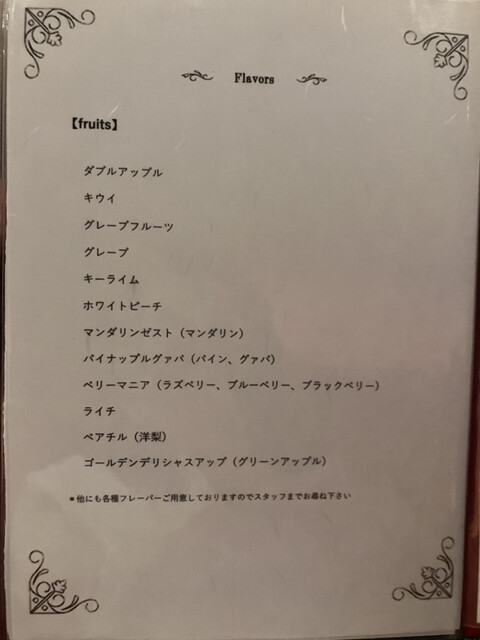 Flavors
【fruits】
ダブルアップル
キウイ
グレープフルーツ
グレープ
キーライム
ホワイトピーチ
マンダリンゼスト（マンダリン）
パイナップルグァバ（パイン、グァバ）
ベリーマニア（ラズベリー、ブルーベリー、ブラックベリー）
ライチ
ペアチル（洋梨）
ゴールデンデリシャスアップ（グリーンアップル）
＊他にも各種フレーバーご用意しておりますのでスタッフまでお尋ね下さい